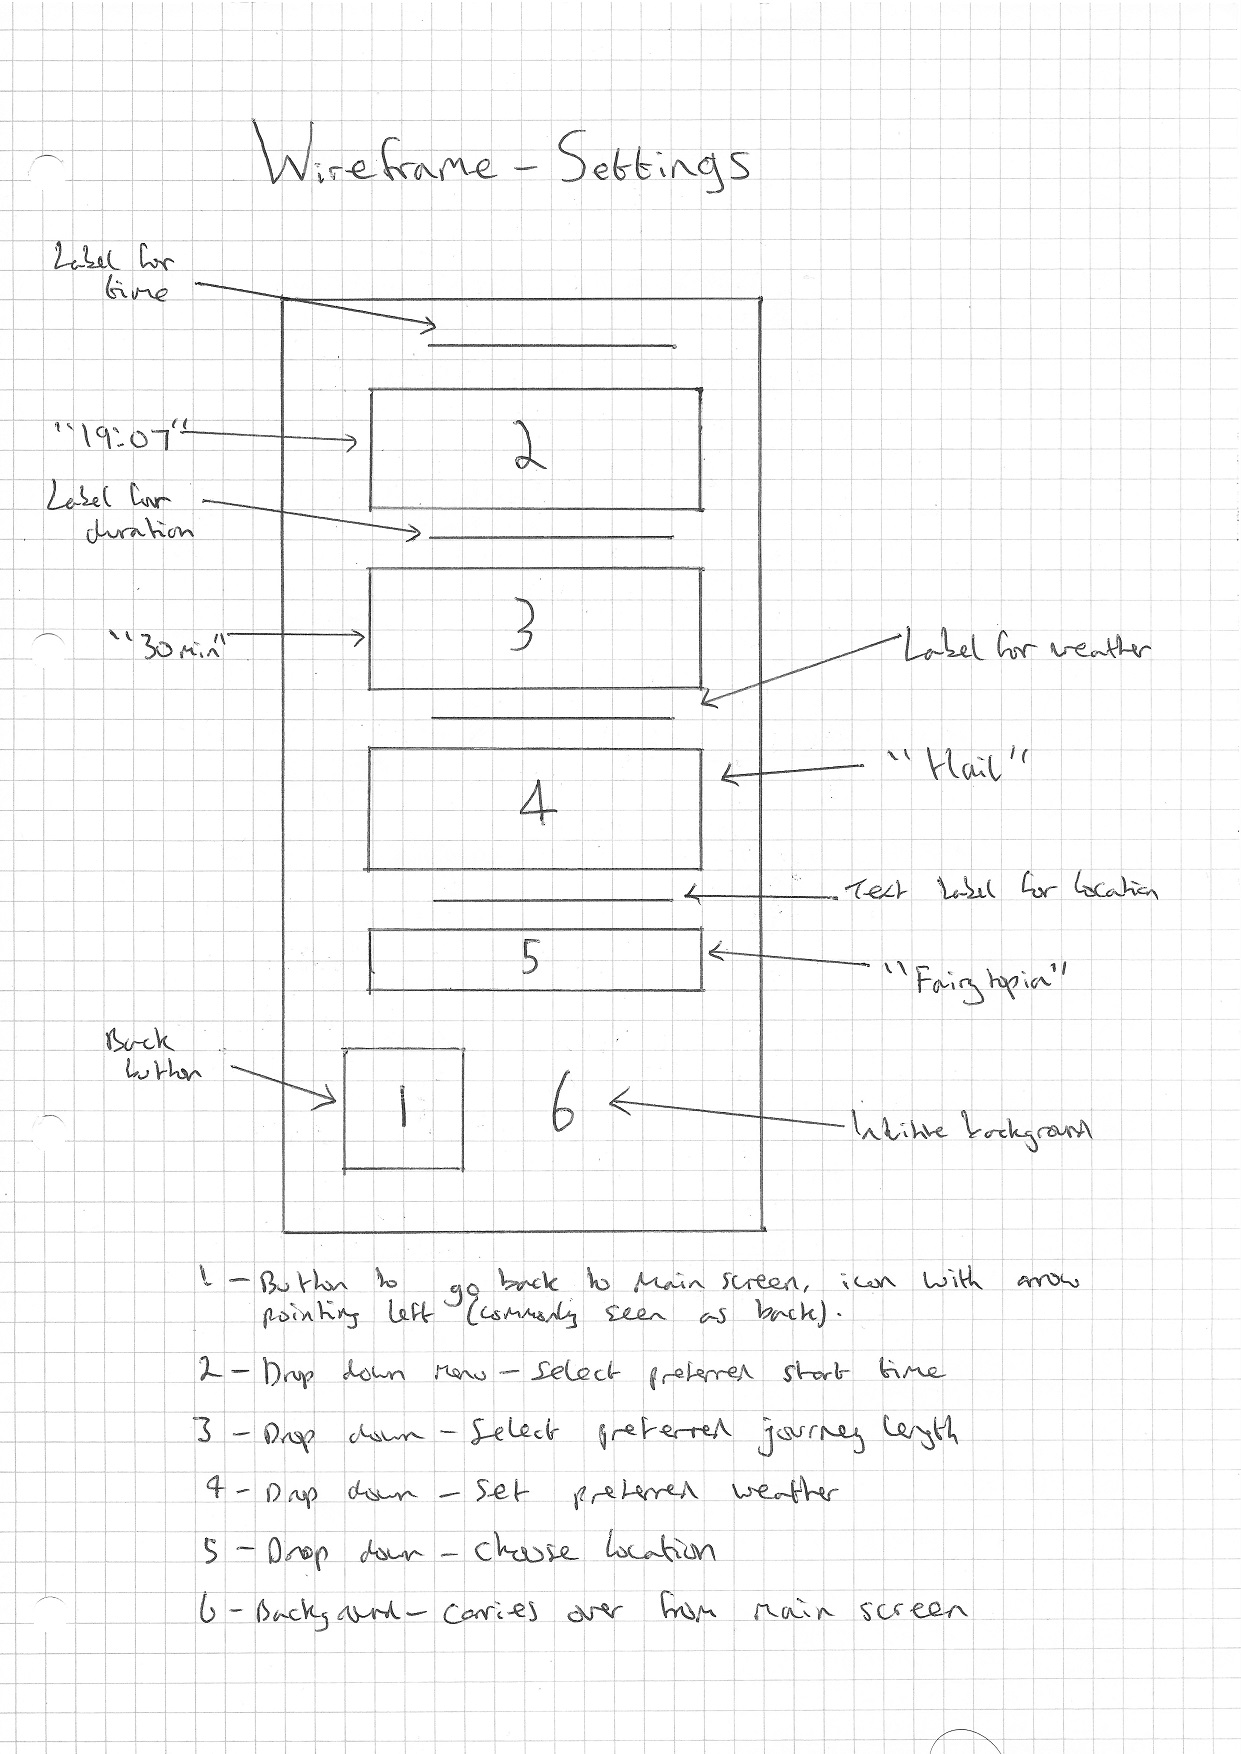 Wireframe - Settings
Label for
time
"19:07"
Label for
duration
"30min"
Label for weather
"Hail"
Text Label for location
"Fairytopia"
Back
button
background
2
3
4
5
1
6
1 - Button to go back to main screen, icon with arrow
pointing left (commonly seen as back).
2 - Drop down menu - select preferred start time
3 - Drop down - select preferred journey length
4 - Drop down - set preferred weather
5 - Drop down - choose location
6 - Background - carries over from main screen